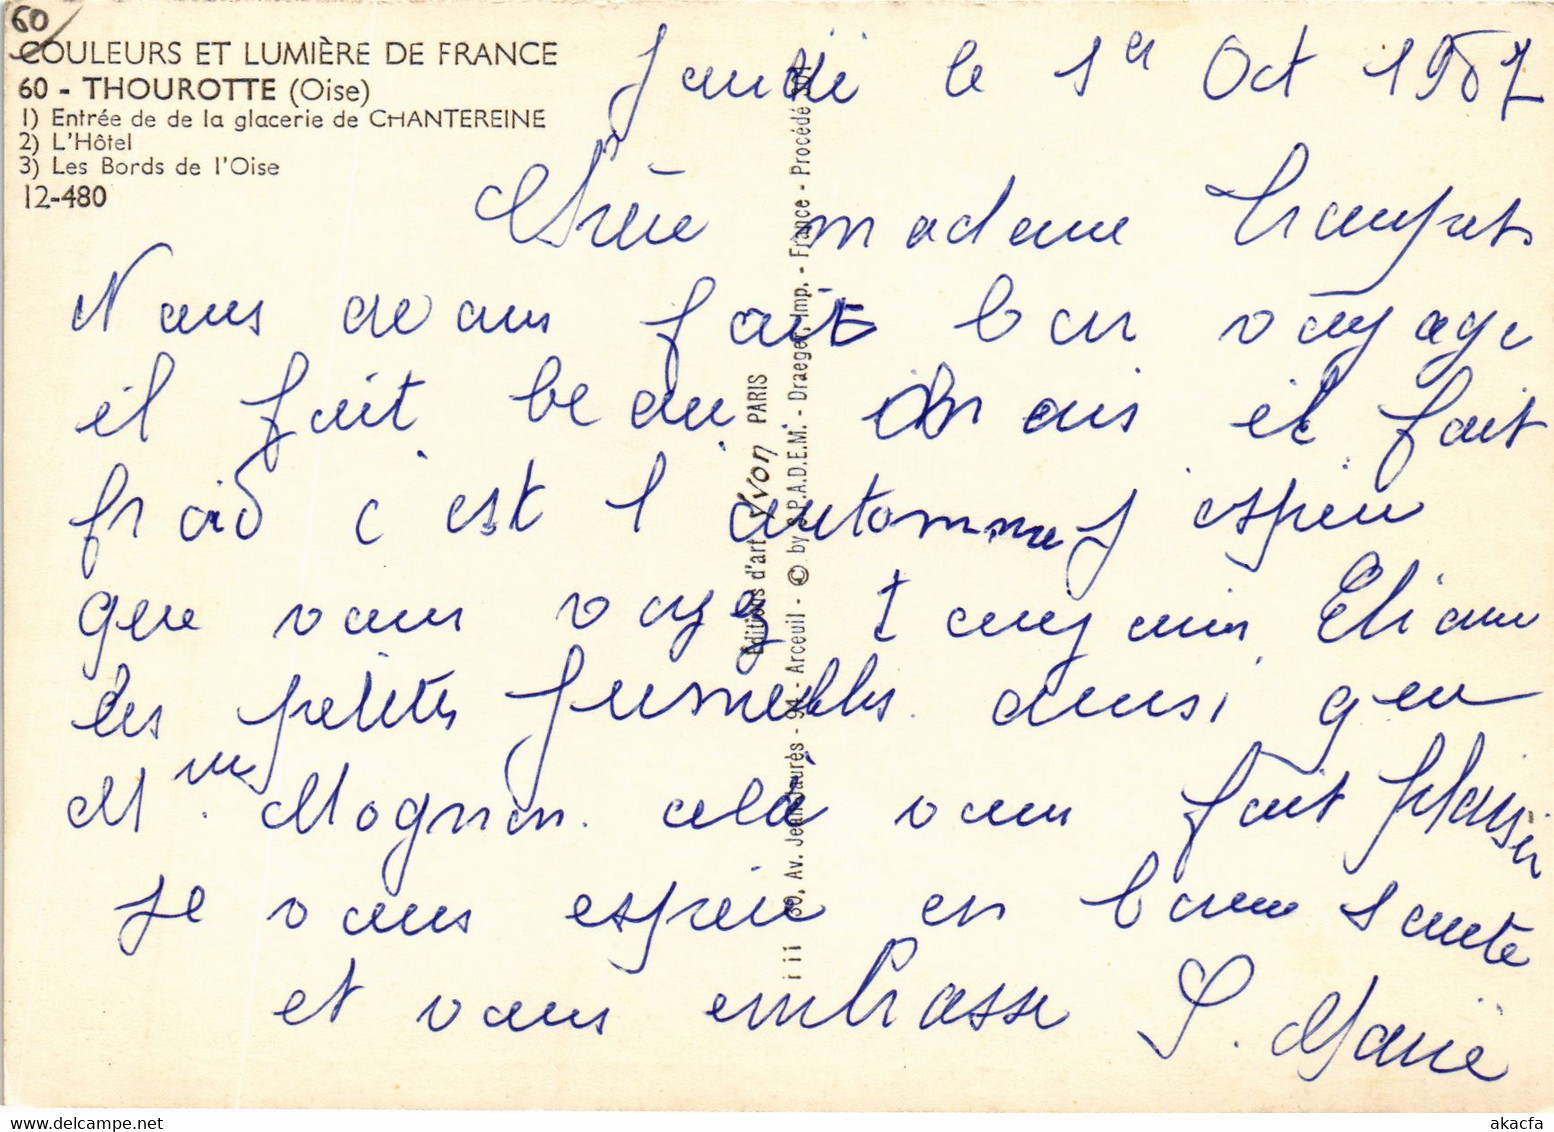 60
COULEURS ET LUMIÈRE DE FRANCE
60 - THOUROTTE (Oise)
1) Entrée de de la glacerie de CHANTEREINE
2) L'Hôtel
3) Les Bords de l'Oise
12-480
Jeudi le 1er Oct 1987
Chère madame
Nous avons fait bon voyage
il fait beau mais il fait
froid c'est l'automne j espère
que vous voyez toujours Eliane
les petites jumelles ainsi que
Mme Mognon. cela vous fait plaisir
je vous espère en bonne santé
et vous embrasse S. Marie
Editions d'art Yvon PARIS
iii 80, Av. Jean Jaurès - 94 - Arceuil - © by S.P.A.D.E.M. - Draeger, Imp. - France - Procédé 301
akacfa
www.delcampe.net